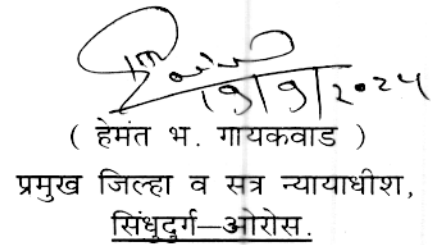 ( हेमंत भ. गायकवाड )
प्रमुख जिल्हा व सत्र न्यायाधीश,
सिंधुदुर्ग–ओरोस.